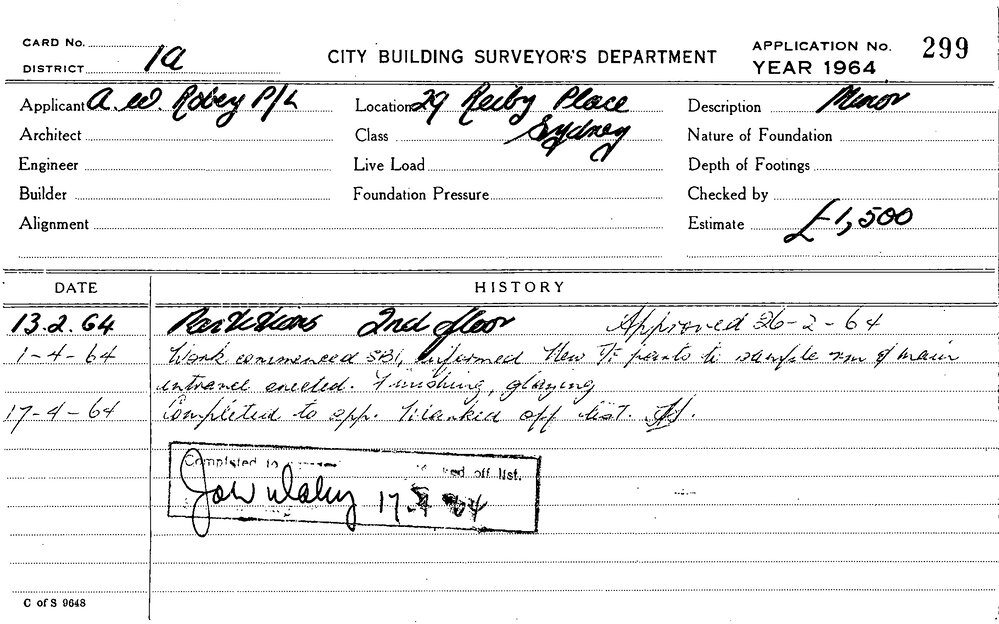 CARD No.
DISTRICT 1a
CITY BUILDING SURVEYOR'S DEPARTMENT
APPLICATION No. 299
YEAR 1964
Applicant A. W. Robey P/L
Location 29 Reiby Place
Sydney
Description Minor
Architect
Class
Nature of Foundation
Engineer
Live Load
Depth of Footings
Builder
Foundation Pressure
Checked by
Alignment
Estimate £1,500
DATE
HISTORY
13.2.64 Partitions 2nd floor Approved 26-2-64
1-4-64 Work commenced SBI, informed New to sample rm & main
entrance erected. Finishing, glazing
17-4-64 Completed to app. Marked off list.
Completed to off list.
17 64
C of S 9648